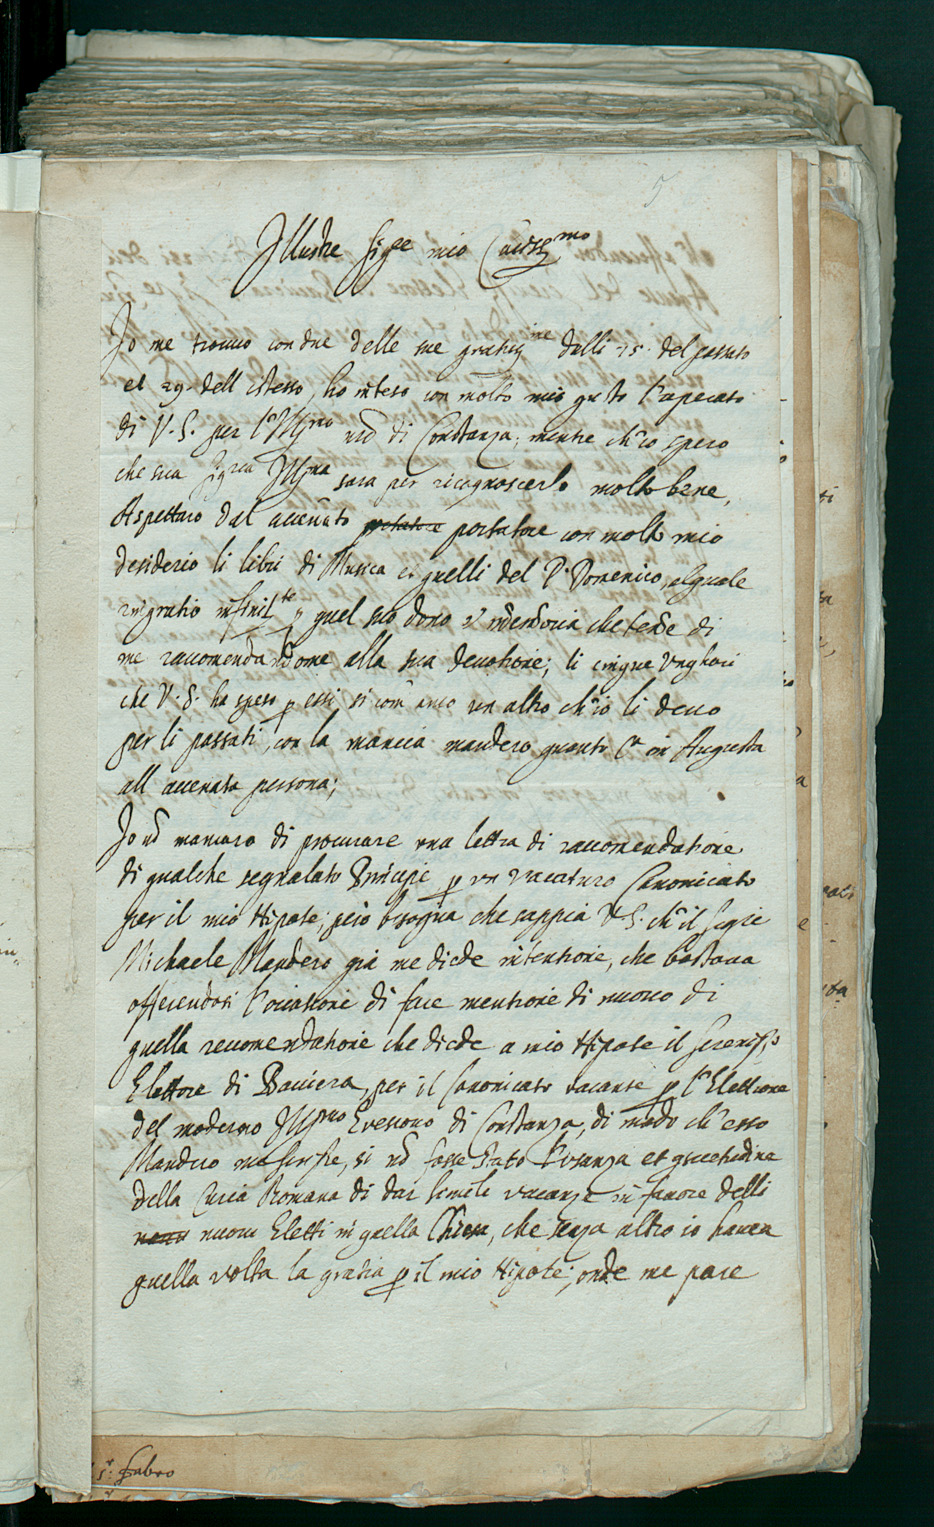 5
Illustre Sig.re mio Cariss.mo
Io me trovuo con due delle sue gratiss.me dalli 15. del passato
et 29. dell istesso, ho inteso con molto mio gusto l'apecato
di V. S. per l'Ill.mo nrõ di Constanza, mentre ch'io spero
che sua Sig.ria Ill.ma sara per ricognoscerlo molto bene,
Aspettaro dal accenato portatore con molto mio
desiderio li libri di Musica et quelli del P. Domenico, al quale
ringratio infinit.te p quel suo dono et memoria che tiene di
me raccomendandome alla sua devotione; li cinque Unghari
che V. S. ha speso p essi, si com anco un altro ch'io li devo
per li passati, con la mancia mandero quanto p.a in Augusta
all accenata persona;
Io nõ mancaro di procurare una lettra di raccomendatione
di qualche segnalato Principe p un vacaturo Canonicato
per il mio Nipote; però bisogna che sappia V. S. ch'il Sig.re
Michaele Mandero già me diede intentione, che bastava
offerendosi l'occasione di fare mentione di nuovo di
quella recomendatione che diede a mio Nipote il Sereniss.o
Elettore di Baviera, per il Canonicato vacante p l'Elettione
del moderno Ill.mo Vescovo di Constanza, di modo ch'esso
Mandero me scrisse, si nõ fosse stato l'usanza et
della Curia Romana di dar simile vacanze in favore delli
nuovi Eletti in quella Chiesa, che senza altro io haveva
quella volta la gratia p il mio Nipote; onde me pare
Fabro